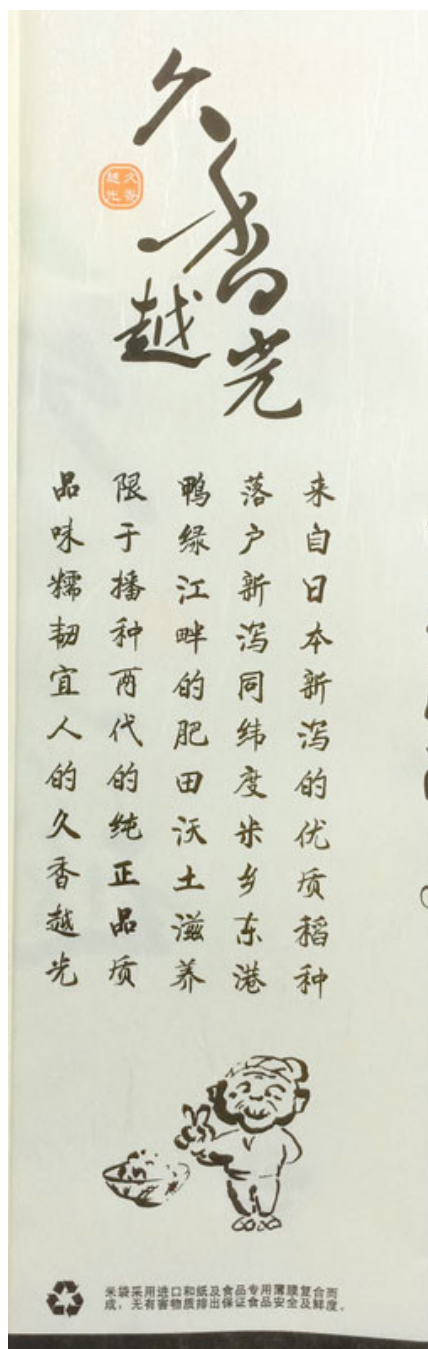 久香越光
久香
越光
来自日本新泻的优质稻种
落户新泻同纬度米乡东港
鸭绿江畔的肥田沃土滋养
限于播种两代的纯正品质
品味糯韧宜人的久香越光
米袋采用进口和纸及食品专用薄膜复合而
成，无有害物质排出保证食品安全及鲜度。